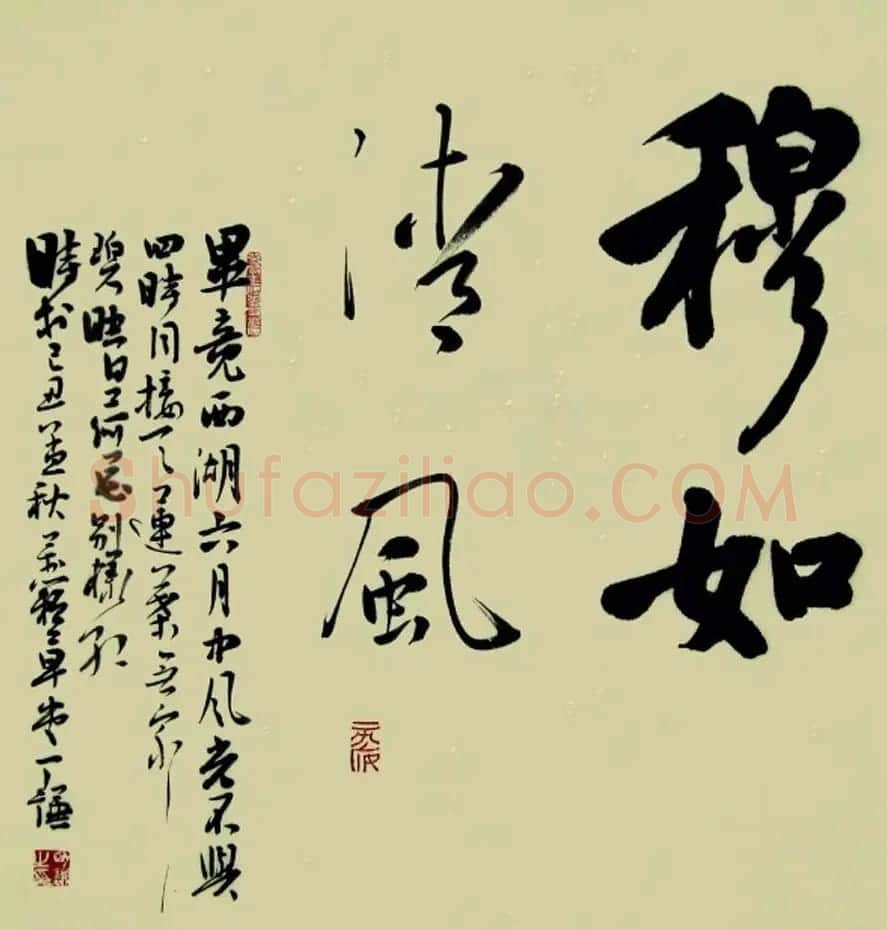 穆如
清風
畢竟西湖六月中风光不與
四時同接天蓮葉無窮
碧映日荷花别樣紅
時於己丑孟秋草堂丁謙
Shufaziliao.COM